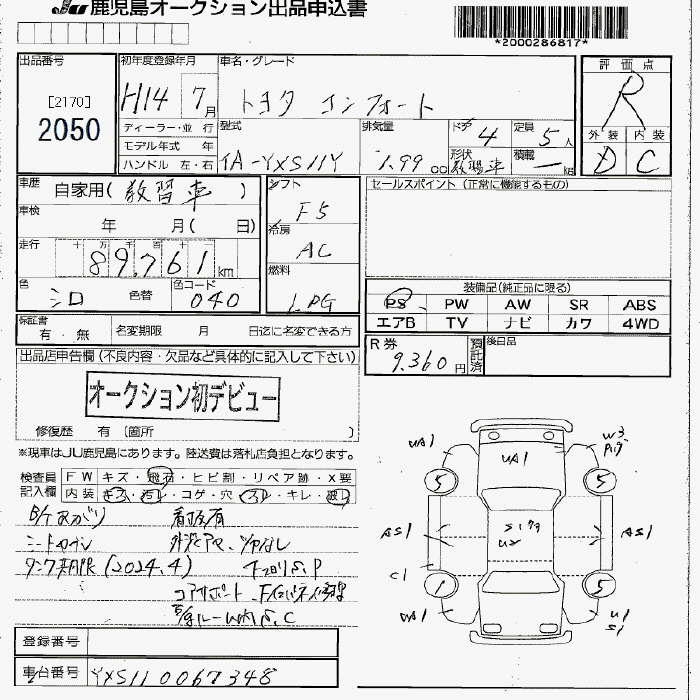 JU 鹿児島オークション出品申込書
*2000286817*
出品番号
[2170]
2050
初年度登録年月
H14 7月
車名・グレード
トヨタ コンフォート
評価点
R
外装 内装
D C
ディーラー・並 行
モデル年式 年
ハンドル 左・右
型式
TA-YXS11Y
排気量
1.99 cc
ドア 4
定員 5人
形状 教習車
積載 kg
車歴 自家用(教習車)
車検 年 月( 日)
走行 十 万 千 百 十 一
89,761 km
色 シロ 色替
色コード 040
シフト
F5
冷房
AC
燃料
LPG
セールスポイント (正常に機能するもの)
装備品(純正品に限る)
PS PW AW SR ABS
エアB TV ナビ カワ 4WD
保証書
有・無
名変期限 月 日迄に名変できる方
R券 9,360円
預託済
後日品
出品店申告欄(不良内容・欠品など具体的に記入して下さい)
オークション初デビュー
修復歴 有 (箇所 )
※現車はJU鹿児島にあります。陸送費は落札店負担となります。
検査員記入欄
FW キズ・飛石・ヒビ割・リペア跡・X要
内装
コゲ・穴
キレ
タンク期限(2024.4)
コアサポート
C
登録番号
車台番号 YXS11 0067348
UA1
W3
UA1
5
5
AS1
AS1
C1
1
5
U1
S1